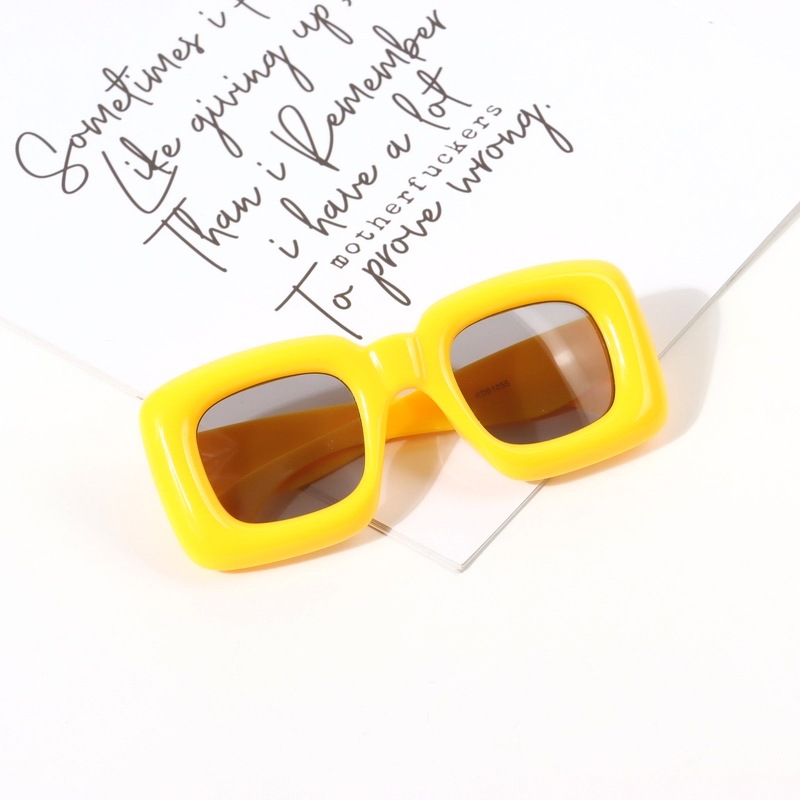 Sometimes i f
Like giving up,
Than i Remember
i have a lot
motherfuckers
To prove wrong.